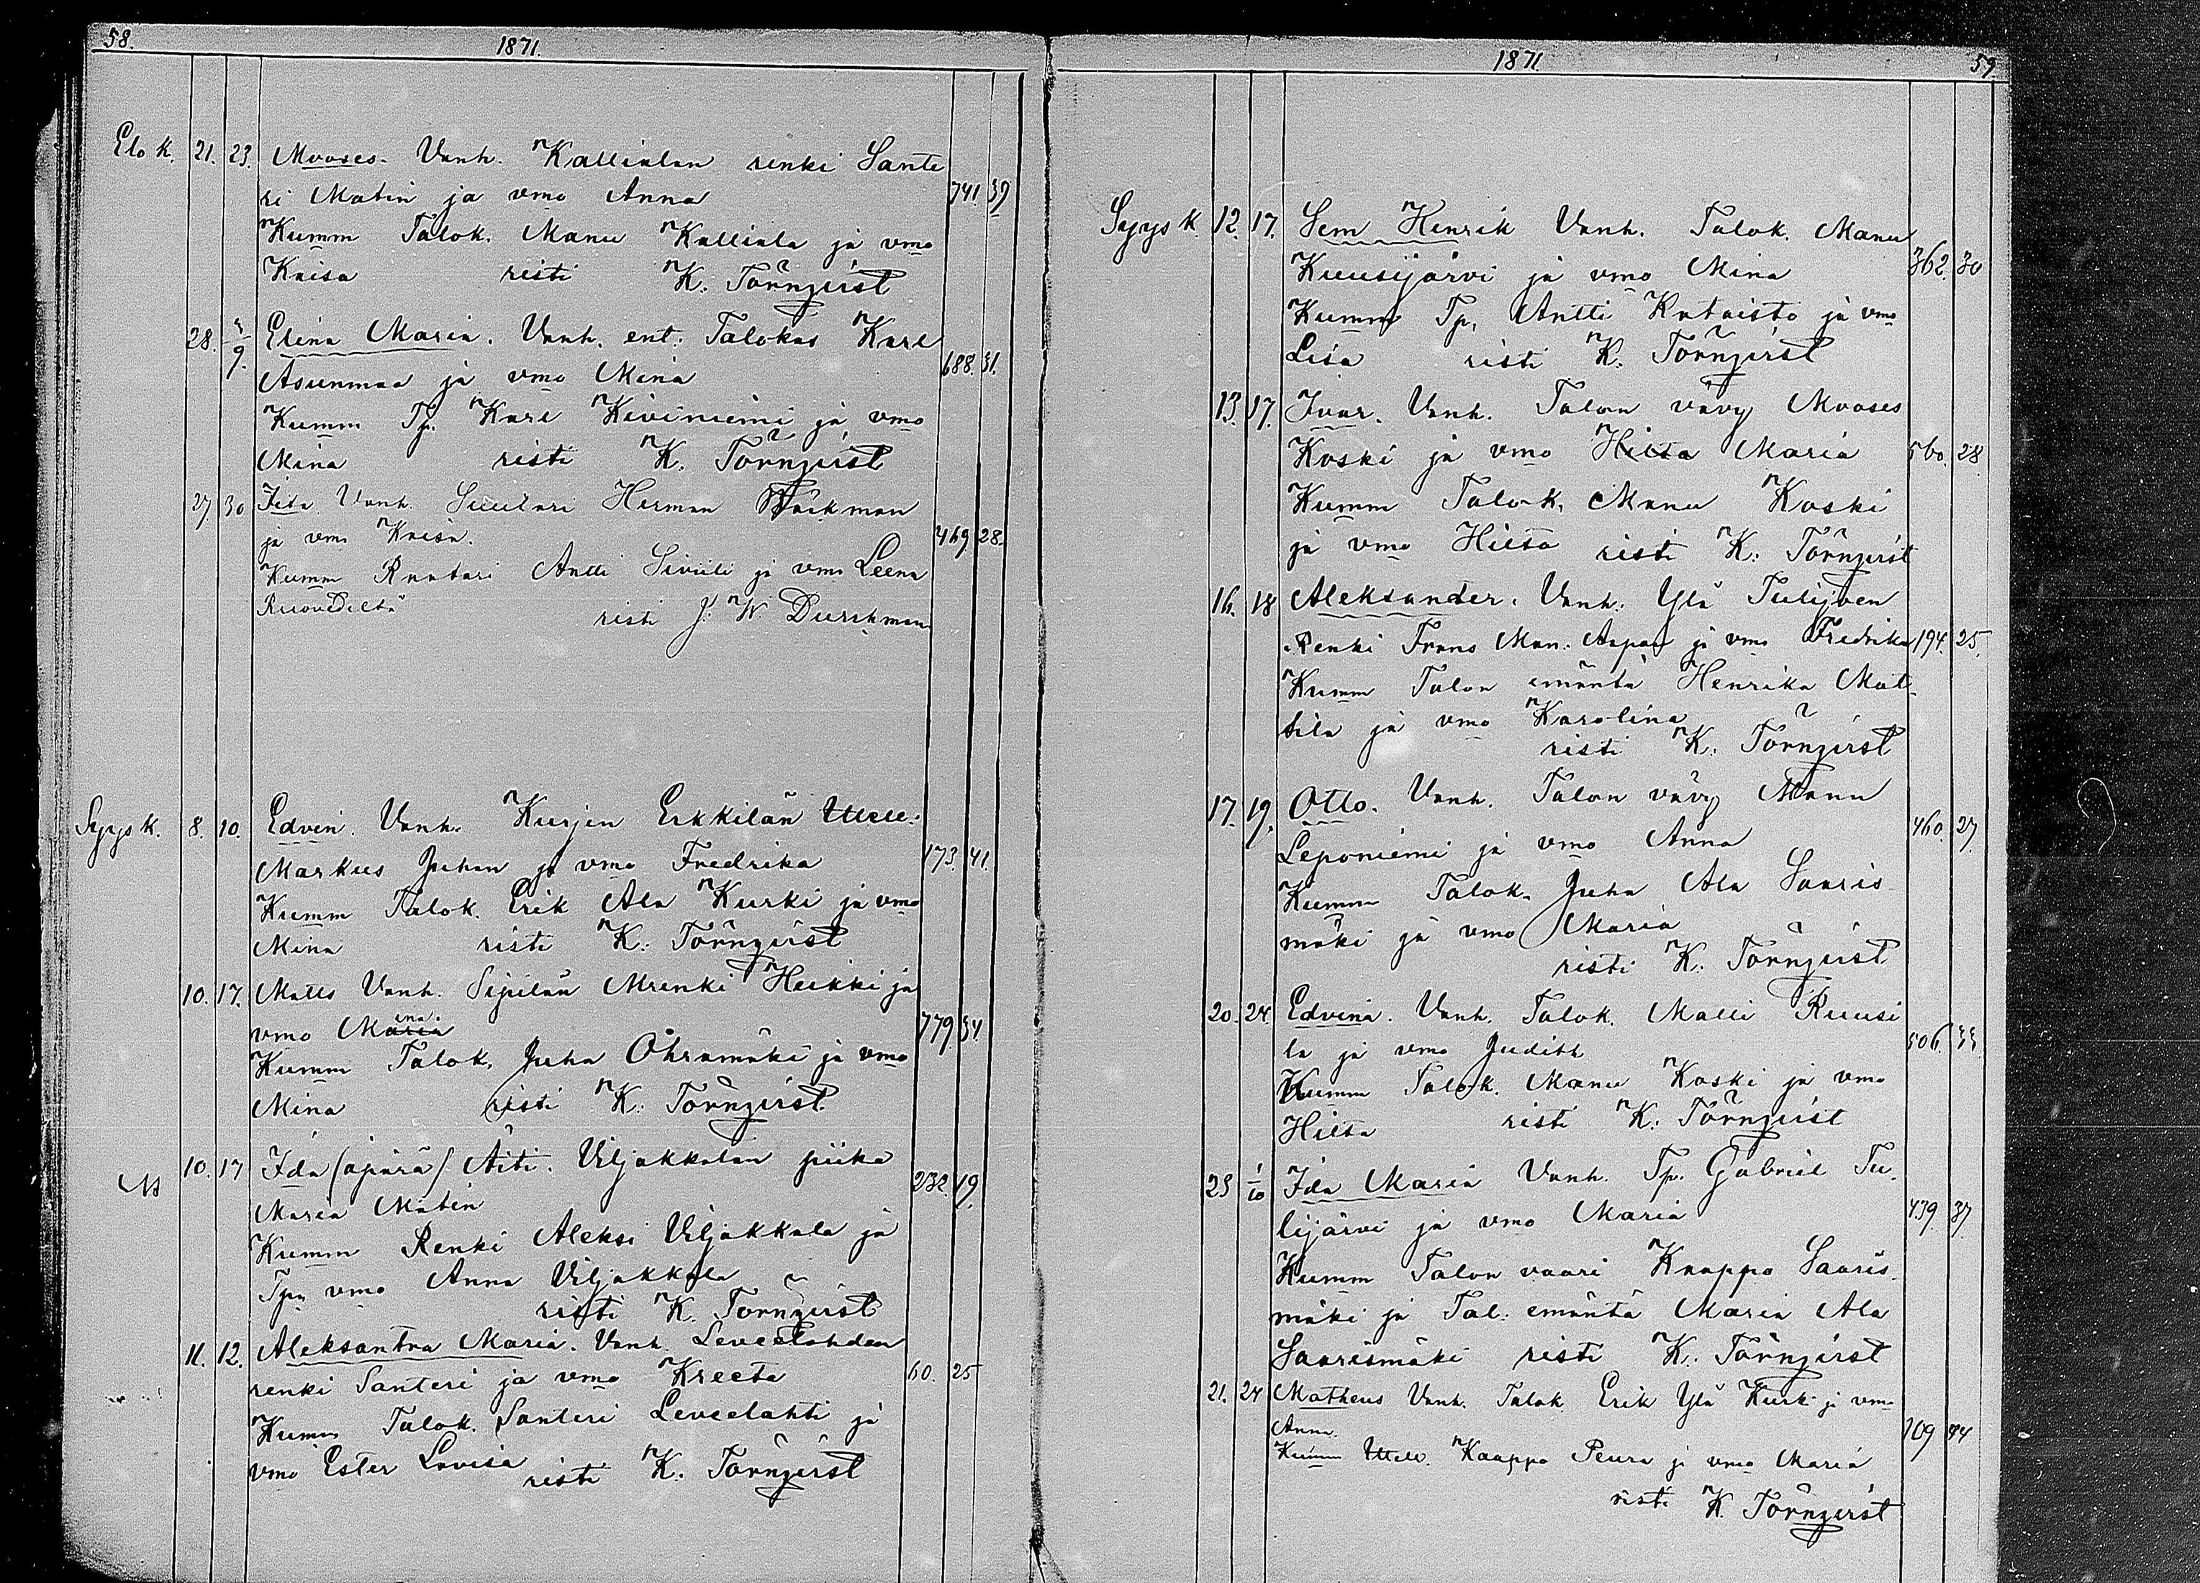 58.
1871.
Elo k. 21. 23. Mooses. Vanh. Kallialan renki Sante
ri Matin ja vmo Anna 741 39
Kumm Talok. Manu Kalliala ja vmo
Kaisa risti K. Törnqvist
28. 3/9. Elina Maria. Vanh. ent. Talokas Karl
Asunmaa ja vmo Mina 688. 31.
Kumm Tp. Karl Kiviniemi ja vmo
Mina risti K. Törnqvist
27 30 Iita Vanh. Suutari Herman Wäkman
ja vmo Kaisa. 469 28.
Kumm Räätäri Antti Siviili ja vmo Leena
risti J. W. Durchman
Syys k. 8. 10. Edvin. Vanh. Kurjen Erkkilän Itell.
Markus Juhan ja vmo Fredrika 173. 41.
Kumm Talok. Erik Ala Kurki ja vmo
Mina risti K. Törnqvist
10. 17. Matts Vanh. Sipilän Mrenki Heikki ja
vmo Maria ina. 779 34.
Kumm Talok. Juha Ohramäki ja vmo
Mina risti K. Törnqvist.
10. 17 Ida (äpärä) Äiti. Viljakkalan piika
Maria Matin 232. 19.
Kumm Renki Aleksi Viljakkala ja
Tpn vmo Anna Viljakkala
risti K. Törnqvist
11. 12. Aleksantra Maria. Vanh. Leveelahden
renki Santeri ja vmo Kreeta 60. 25
Kumm Talok. Santeri Leveelahti ja
vmo Ester Lovisa risti K. Törnqvist
1871.
59.
Syys k. 12. 17. Sem Henrik Vanh. Talok. Manu
Kuusijärvi ja vmo Mina 362. 30
Kumm Tp. Antti Kataisto ja vmo
Lisa risti K. Törnqvist
13. 17. Ivar. Vanh. Talon vävy Mooses
Koski ja vmo Hilta Maria 560. 28
Kumm Talok. Manu Koski
ja vmo Hilta risti K. Törnqvist
16. 18 Aleksander. Vanh. Ylä Tulijoen
Renki Frans Man. Aspan ja vmo Fredrika 194. 25.
Kumm Talon emäntä Henrika Mat-
tila ja vmo Karolina
risti K. Törnqvist
17. 19. Otto. Vanh. Talon vävy Manu
Leponiemi ja vmo Anna 460. 27.
Kumm Talok. Juha Ala Saaris
mäki ja vmo Maria
risti K. Törnqvist
20. 24. Edvina. Vanh. Talok. Matti Ruusi
la ja vmo Judith 506. 33
Kumm Talok. Manu Koski ja vmo
Hilta risti K. Törnqvist
25 1/10 Ida Maria Vanh. Tp. Gabriel Tu-
lijärvi ja vmo Maria 439. 37.
Kumm Talon vaari Kaappo Saaris-
mäki ja Tal. emäntä Maria Ala
Saarismäki risti K. Törnqvist
21. 24 Matheus Vanh. Talok. Erik Ylä Kurki ja vmo
Anna. 109 44
Kumm Itell. Kaappo Peura ja vmo Maria
risti K. Törnqvist